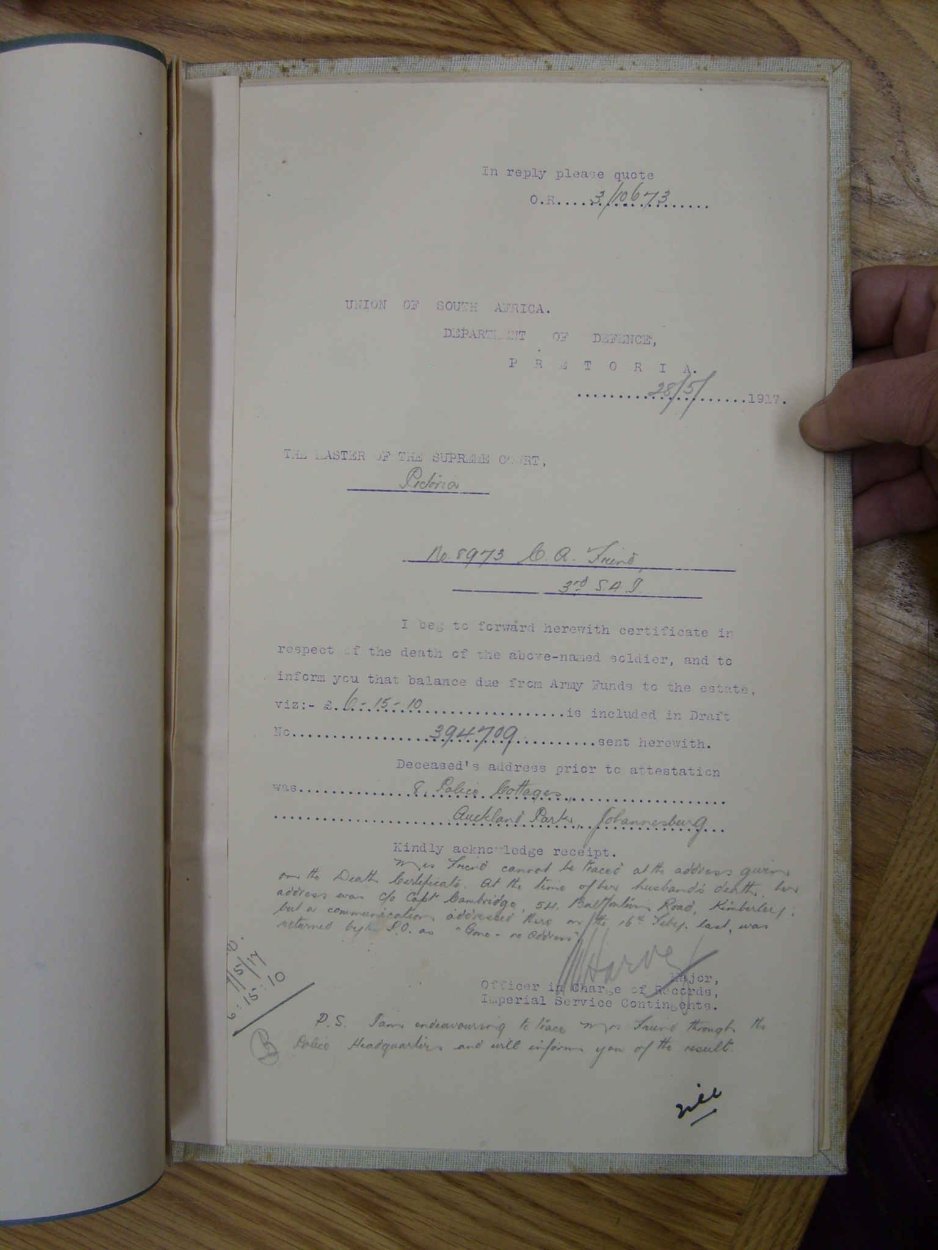 In reply please quote
O.R.....3/10673..........
UNION OF SOUTH AFRICA.
DEPARTMENT OF DEFENCE,
P R E T O R I A.
..........28/5/..........1917.
THE MASTER OF THE SUPREME COURT,
Pretoria
No 8973 C. A. Friend,
3rd S A I
I beg to forward herewith certificate in
respect of the death of the above-named soldier, and to
inform you that balance due from Army Funds to the estate,
viz:- £.6-15-10..................is included in Draft
No..................394709..........sent herewith.
Deceased's address prior to attestation
was...............8 Police Cottages....................
....................Auckland Park, Johannesburg...
Kindly acknowledge receipt.
Mrs Friend cannot be traced at the address given
on the Death Certificate. At the time of her husband's death, her
address was c/o Capt Cambridge, 54. Road, Kimberley;
but a communication addressed there on the 16th Feby. last, was
returned by the P.O. as "Gone - no address"
Harvey
Major,
Officer in Charge of Records,
Imperial Service Contingents.
7/5/17
6:15:10
P.S. I am endeavouring to trace Mrs Friend through the
Police Headquarters and will inform you of the result.